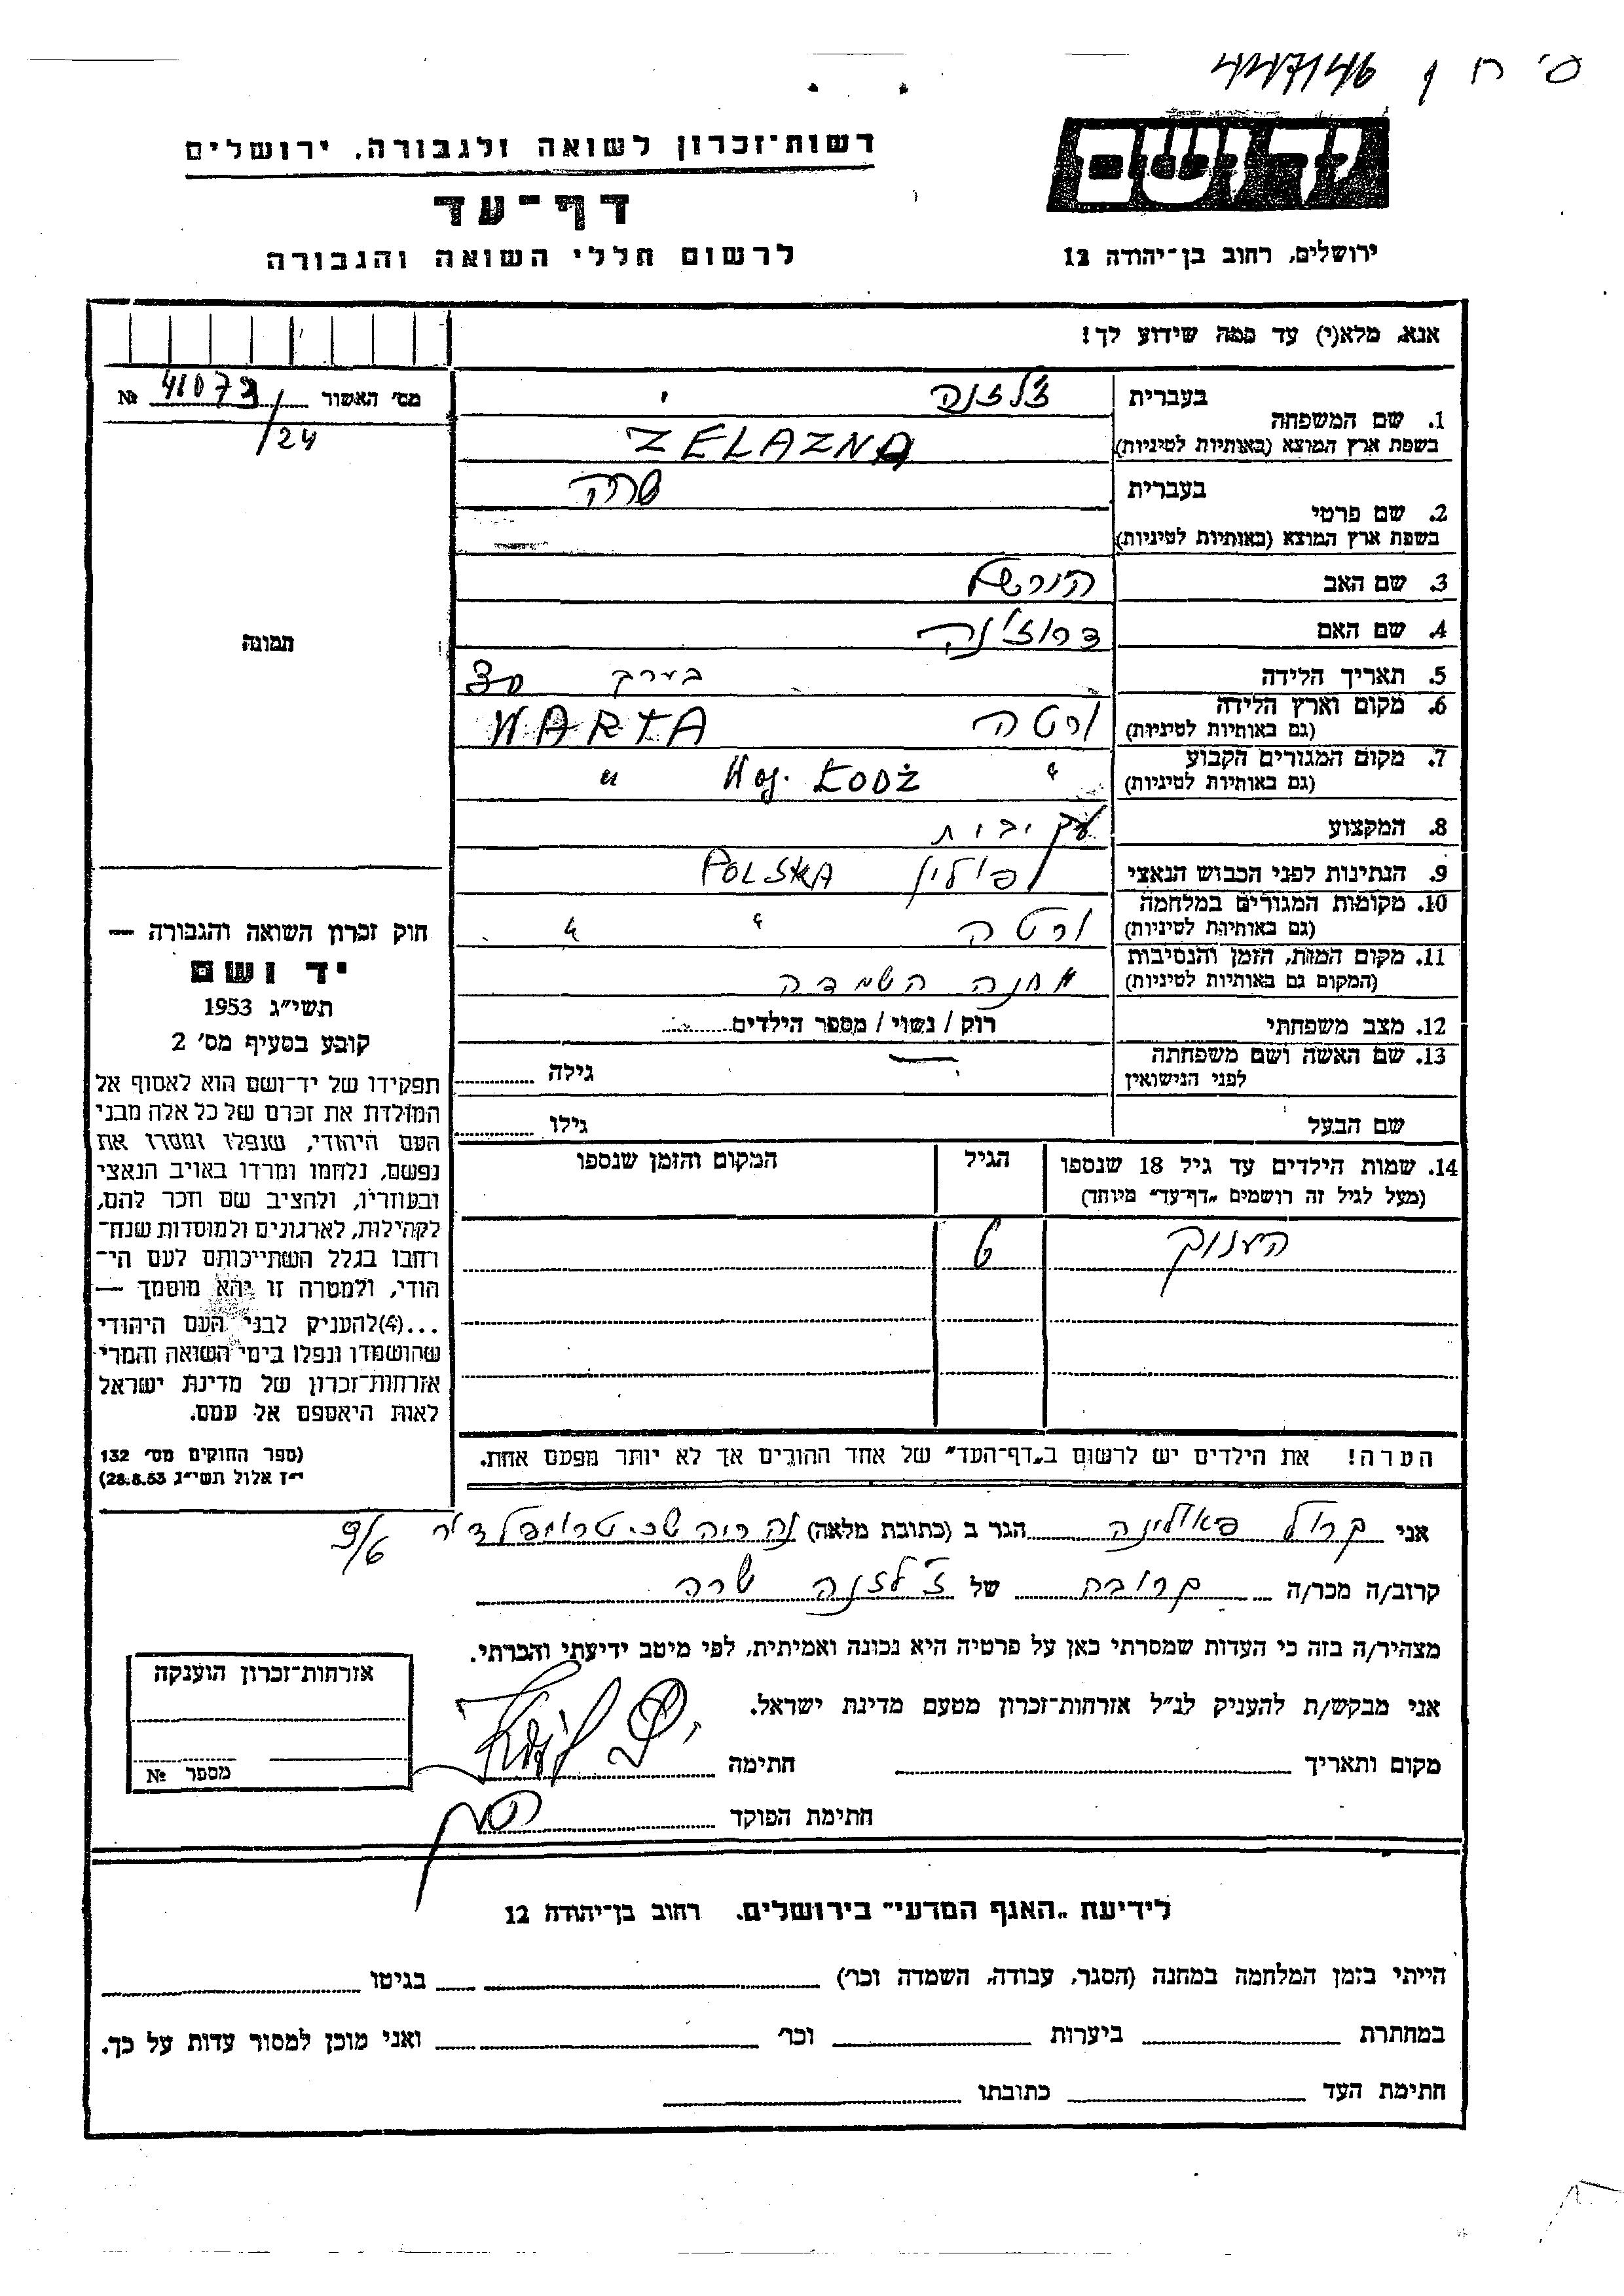 447/46
יד ושם
רשות־זכרון לשואה ולגבורה, ירושלים
דף־עד
לרשום חללי השואה והגבורה
ירושלים, רחוב בן־יהודה 12
אנא, מלא(י) עד כמה שידוע לך!
מס׳ האשור 41073/24 №
1. שם המשפחה
בעברית ז׳לזנה
בשפת ארץ המוצא (באותיות לטיניות) ZELAZNA
2. שם פרטי
בעברית שרה
בשפת ארץ המוצא (באותיות לטיניות)
3. שם האב הורשל
4. שם האם
5. תאריך הלידה בערך
6. מקום וארץ הלידה
(גם באותיות לטיניות) ורטה WARTA
7. מקום המגורים הקבוע
(גם באותיות לטיניות) " Woj. ŁODŻ "
8. המקצוע
9. הנתינות לפני הכבוש הנאצי פולין POLSKA
10. מקומות המגורים במלחמה
(גם באותיות לטיניות) ורטה " "
11. מקום המות, הזמן והנסיבות
(המקום גם באותיות לטיניות) מחנה השמדה
12. מצב משפחתי רוק / נשוי / מספר הילדים
13. שם האשה ושם משפחתה
לפני הנישואין גילה
שם הבעל גילו
14. שמות הילדים עד גיל 18 שנספו הגיל המקום והזמן שנספו
(מעל לגיל זה רושמים „דף־עד״ מיוחד)
הענוך
הערה! את הילדים יש לרשום ב„דף־העד״ של אחד ההורים אך לא יותר מפעם אחת.
תמונה
חוק זכרון השואה והגבורה —
יד ושם
תשי״ג 1953
קובע בסעיף מס׳ 2
תפקידו של יד־ושם הוא לאסוף אל
המולדת את זכרם של כל אלה מבני
העם היהודי, שנפלו ומסרו את
נפשם, נלחמו ומרדו באויב הנאצי
ובעוזריו, ולהציב שם וזכר להם,
לקהילות, לארגונים ולמוסדות שנח־
רבו בגלל השתייכותם לעם הי־
הודי, ולמטרה זו יהא מוסמך —
...(4)להעניק לבני העם היהודי
שהושמדו ונפלו בימי השואה והמרי
אזרחות־זכרון של מדינת ישראל
לאות היאספם אל עמם.
(ספר החוקים מס׳ 132
י״ז אלול תשי״ג 28.8.53)
אני קרול פאולינה הגר ב (כתובת מלאה) נהריה שכ׳ טרומפלדור 9/6
קרוב/ה מכר/ה קרובה של ז׳לזנה שרה
מצהיר/ה בזה כי העדות שמסרתי כאן על פרטיה היא נכונה ואמיתית, לפי מיטב ידיעתי והכרתי.
אני מבקש/ת להעניק לנ״ל אזרחות־זכרון מטעם מדינת ישראל.
מקום ותאריך חתימה
חתימת הפוקד
אזרחות־זכרון הוענקה
מספר №
לידיעת „האגף המדעי״ בירושלים, רחוב בן־יהודה 12
הייתי בזמן המלחמה במחנה (הסגר, עבודה, השמדה וכו׳) בגיטו
במחתרת ביערות וכו׳ ואני מוכן למסור עדות על כך.
חתימת העד כתובתו